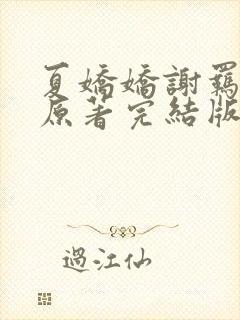 夏嬌嬌謝羈
原著完結版
過江仙